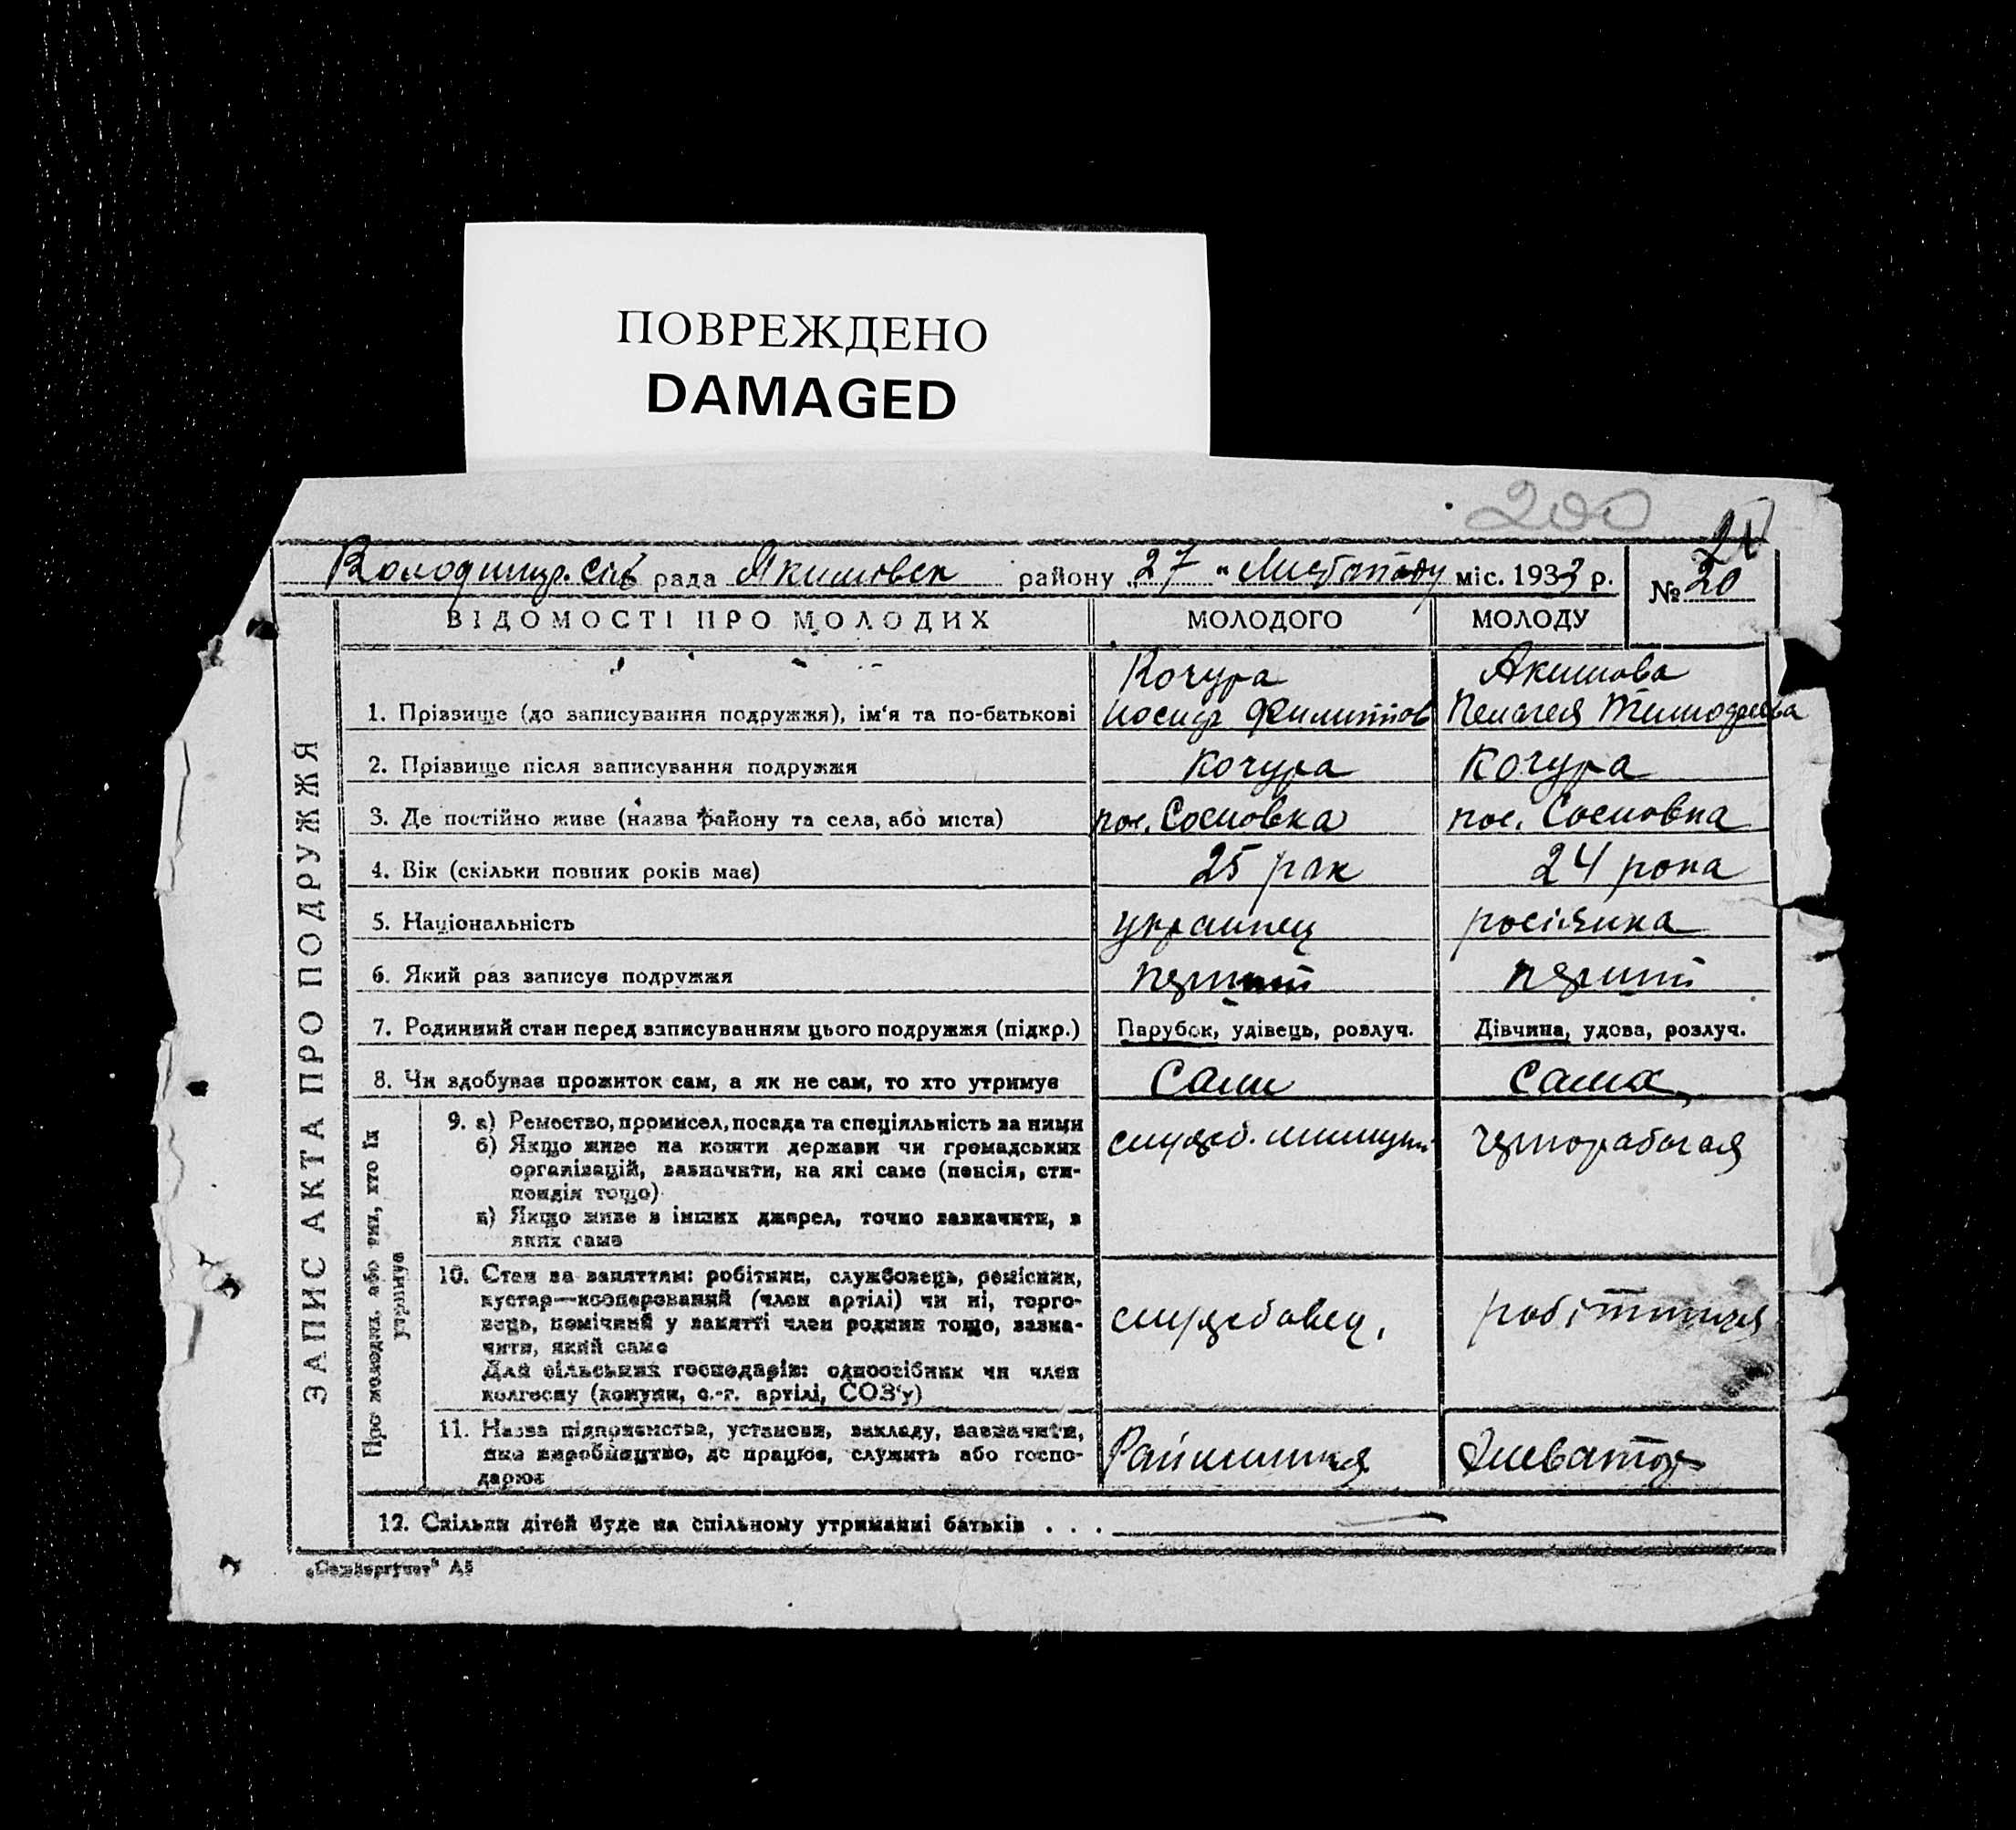 ПОВРЕЖДЕНО
DAMAGED
200
21
Володимир. сів рада Якимовск району 27 " Листопаду міс. 1933 р. № 20
ВІДОМОСТІ ПРО МОЛОДИХ МОЛОДОГО МОЛОДУ
ЗАПИС АКТА ПРО ПОДРУЖЖЯ
Кочура Акимова
1. Прізвище (до записування подружжя), ім'я та по-батькові Иосиф Филиппов Пелагея Тимофеева
2. Прізвище після записування подружжя Кочура Кочура
3. Де постійно живе (назва району та села, або міста) пос. Сосновка пос. Сосновка
4. Вік (скільки повних років має) 25 рок 24 рока
5. Національність украинец росіянка
6. Який раз записує подружжя перший перший
7. Родинний стан перед записуванням цього подружжя (підкр.) Парубок, удівець, розлуч. Дівчина, удова, розлуч.
8. Чи здобуває прожиток сам, а як не сам, то хто утримує Сам Сама
Про молодих, або тих, хто їх утримує
9. а) Ремество, промисел, посада та спеціяльність за ними чернорабочая
б) Якщо живе на кошти держави чи громадських
організацій, зазначити, на які саме (пенсія, сти-
пендія тощо)
в) Якщо живе з інших джерел, точно зазначити, з
яких саме
10. Стан за заняттям: робітник, службовець, ремісник,
кустар—кооперований (член артілі) чи ні, торго-
вець, помічний у занятті член родини тощо, зазна- службовец, робітниця
чити, який саме
Для сільських господарів: одноосібник чи член
колгоспу (комуни, с.-г. артілі, СОЗ'у)
11. Назва підприємства, установи, закладу, зазначити,
яке виробництво, де працює, служить або госпо- Элеватор
дарює
12. Скільки дітей буде на спільному утриманні батьків . . .